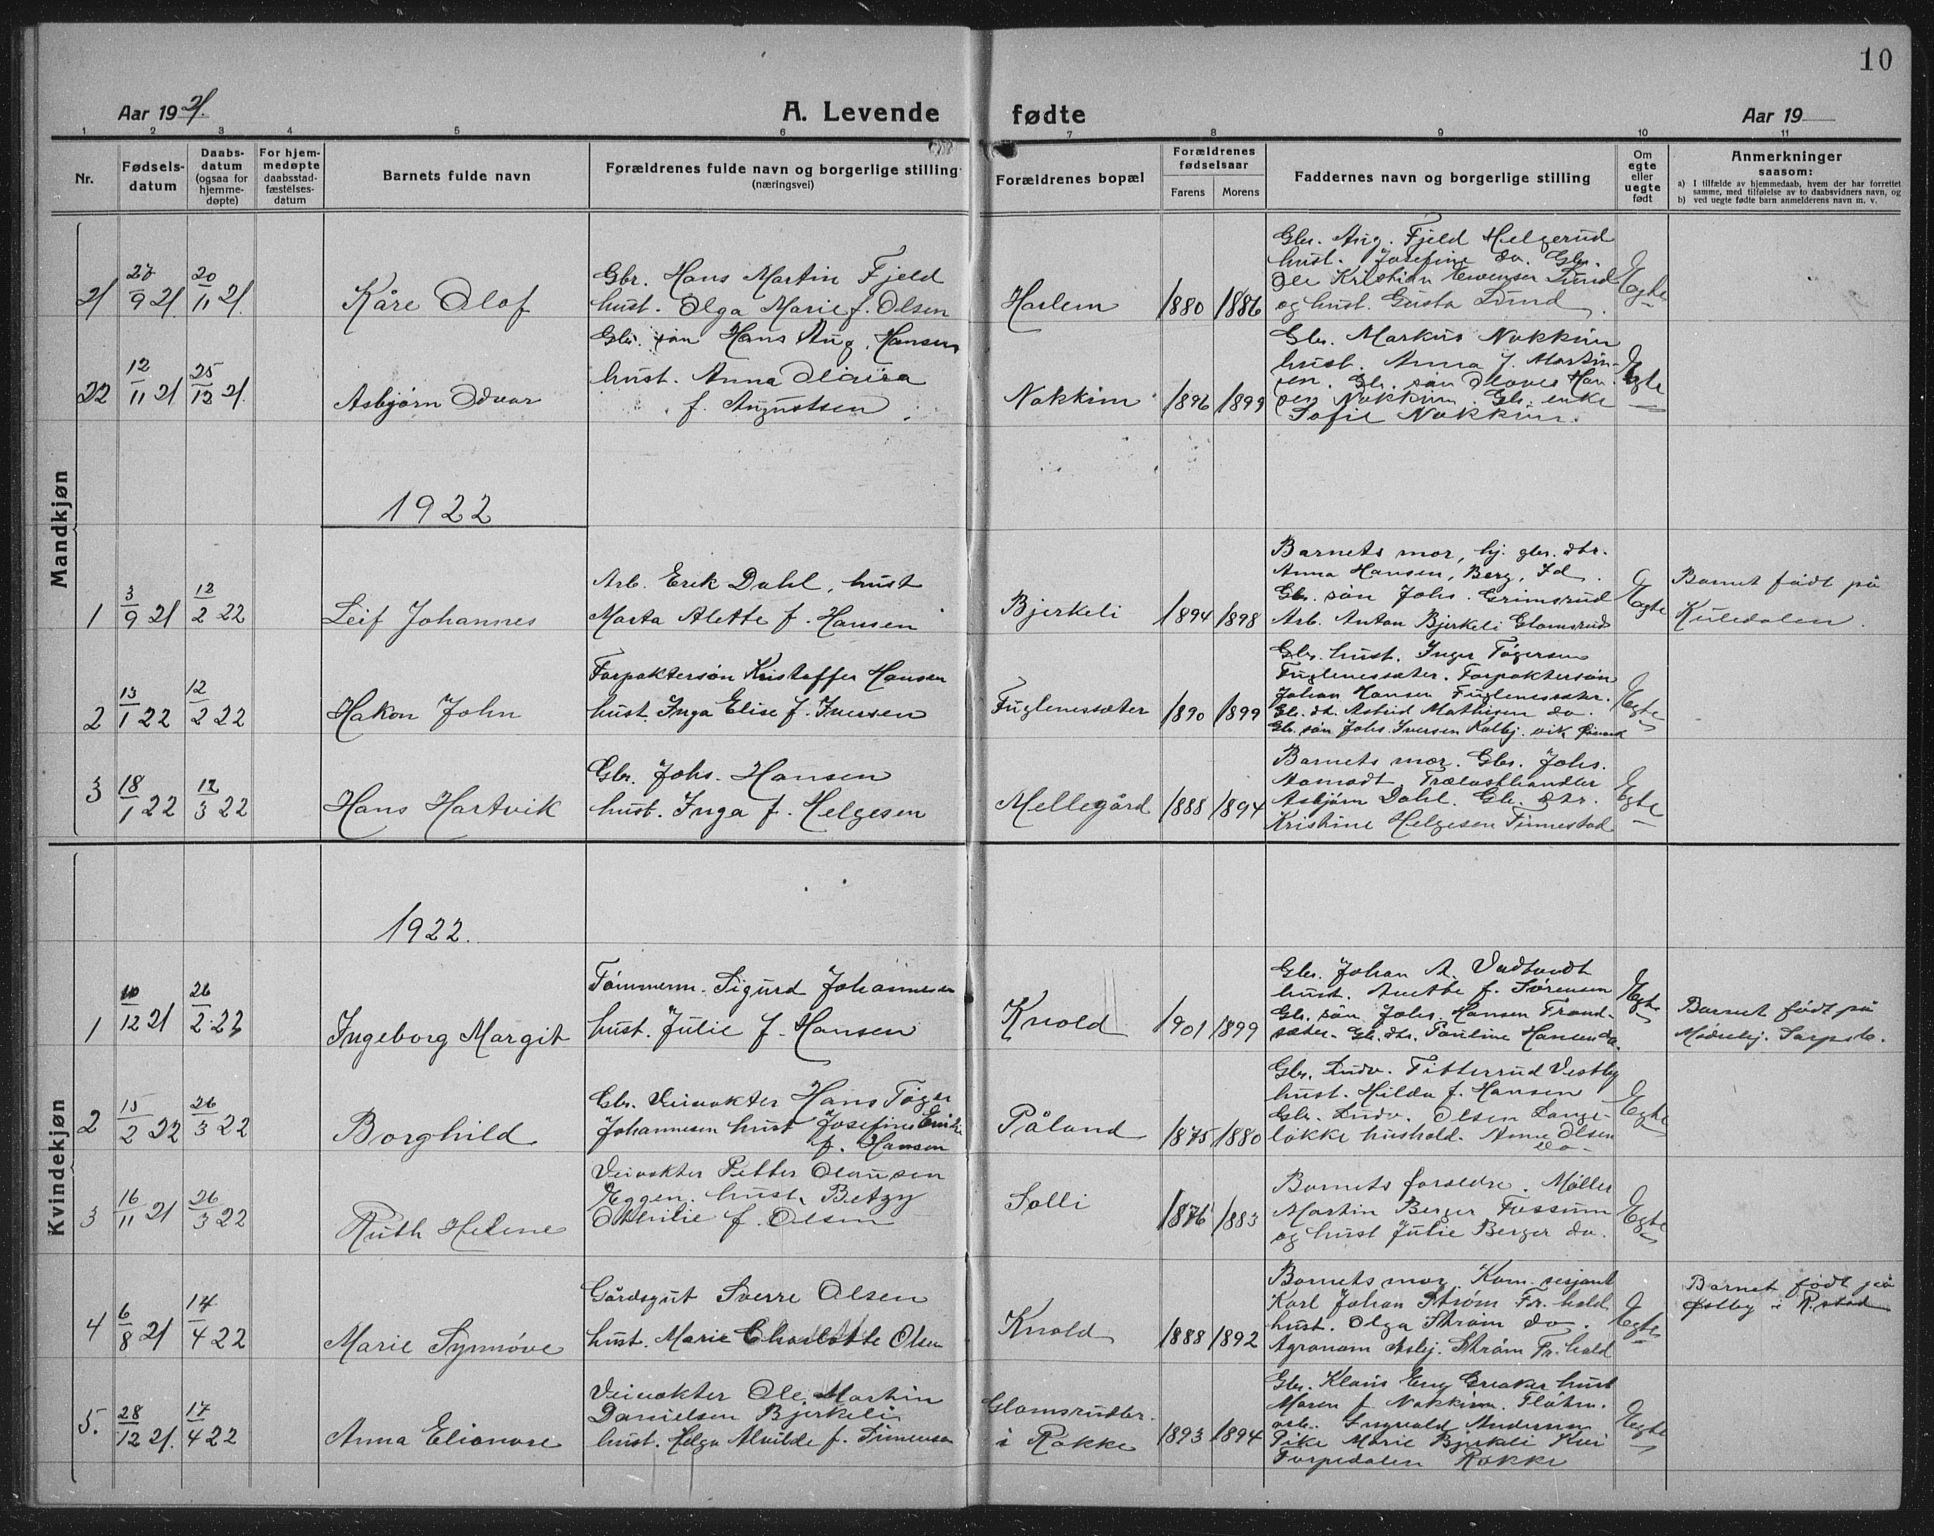 10
Aar 1921. A. Levende fødte Aar 19
1 2 3 4 5 6 7 8 9 10 11
Nr.
Fødselsdatum
Daabsdatum (ogsaa for hjemmedøpte)
For hjemmedøpte daabsstadfæstelsesdatum
Barnets fulde navn
Forældrenes fulde navn og borgerlige stilling (næringsvei)
Forældrenes bopæl
Forældrenes fødselsaar
Farens Morens
Faddernes navn og borgerlige stilling
Om egte eller uegte født
Anmerkninger saasom:
a) I tilfælde av hjemmedaab, hvem der har forrettet samme, med tilføielse av to daabsvidners navn, og
b) ved uegte fødte barn anmelderens navn m. v.
Mandkjøn
21 27/9 21 20/11 21. Kåre Olof
Gbr. Hans Martin Fjeld
hust. Olga Marie f. Olsen
Harlem 1880 1886
Gbr. Aug. Fjeld Helgerud
hust. Josefine do. Gbr.
Ole Kristian Evensen Lund
og hust. Gusta Lund
Egte
22 12/11 21 25/12 21. Asbjørn Odvar
Gbr. søn Hans Aug. Hansen
hust. Anna
f. Augustsen
Nokkim 1896 1899
Gbr. Markus Nokkim
hust. Anna f. Martin-
sen. Gbr. søn Han-
sen Nokkim. Gbr. enke
Sofie Nokkim.
Egte
1922
1 3/9 21 12/2 22 Leif Johannes
Arb. Erik Dahl, hust
Marta Alette f. Hansen
Bjerkeli 1894 1898
Barnets mor, hj. gbr. dtr.
Anna Hansen, Berg, Id.
Gbr. søn Johs. Grimsrud
Arb. Anton Bjerkeli Glomsrud
Egte
Barnet født på
Kuledalen.
2 13/1 22 12/2 22 Hakon John
Forpaktersøn Kristoffer Hansen
hust. Inga Elise f. Iversen
Fuglenessæter 1890 1899
Gbr. hust. Inger Tøgersen
Fuglenessæter. Forpaktersøn
Johan Hansen Fuglenessæter.
Gbr. dt. Astrid Mathisen do.
Gbr. søn Johs. Iversen Kolbj. vik
Egte
3 18/1 22 12/3 22 Hans Hartvik
Gbr. Johs. Hansen
hust. Inga f. Helgesen
Mellegård 1888 1894
Barnets mor. Gbr. Johs.
Aamodt Trælasthandler
Asbjørn Dahl. Gbr. dtr.
Kristine Helgesen Tinnestad
Egte
Kvindekjøn
1922.
1 10/12 21 26/2 22 Ingeborg Margit
Tømmerm. Sigurd Johannesen
hust. Julie f. Hansen
Knold 1901 1899
Gbr. Johan A. Vadtvedt
hust. Anette f. Sørensen
Gbr. søn Johs. Hansen Trond-
sæter. Gbr. dtr. Pauline Hansen do.
Egte
Barnet født på
Mødrehj. Sarpsb.
2 15/2 22 26/3 22 Borghild
Gbr. Veivokter Hans Tøger
Johannesen hust Josefine
f. Hansen
Påland 1875 1880
Gbr. Ludv. Fitterrud Vestby
hust. Hilda f. Hansen
Gbr. Ludv. Olsen Lange-
løkke hushold. Anne Olsen
do-
Egte
3 16/11 21 26/3 22 Ruth Helene
Veivokter Petter Olausen
Eggen. hust. Betzy
Othilie f. Olsen
Solli 1876 1883
Barnets foreldre. Møller
Martin Berger Fossum
og hust Julie Berger do.
Egte
4 6/8 21 14/4 22 Marie Synnøve
Gårdsgut Sverre Olsen
hust. Marie Charlotte Olsen
Knold 1888 1892
Barnets mor. Kom. sersjant
Karl Johan Strøm Fr. hald
hust. Olga Strøm do.
Agronom Asbj. Strøm Fr. hald
Egte
Barnet født på
Østby i R.stad
5. 28/12 21. 17/4 22 Anna Elionore
Veivokter Ole Martin
Danielsen Bjerkeli
hust. Helga Alvilde f. Simensen
Glomsrudbr.
i Rokke 1893 1894
Gbr. Klaus Eng Greaker hust
Maren f Nokkim. Fløtn.
arb. Ingvald Andersen
Pike Marie Bjerkeli
Torpedalen Rokke
Egte